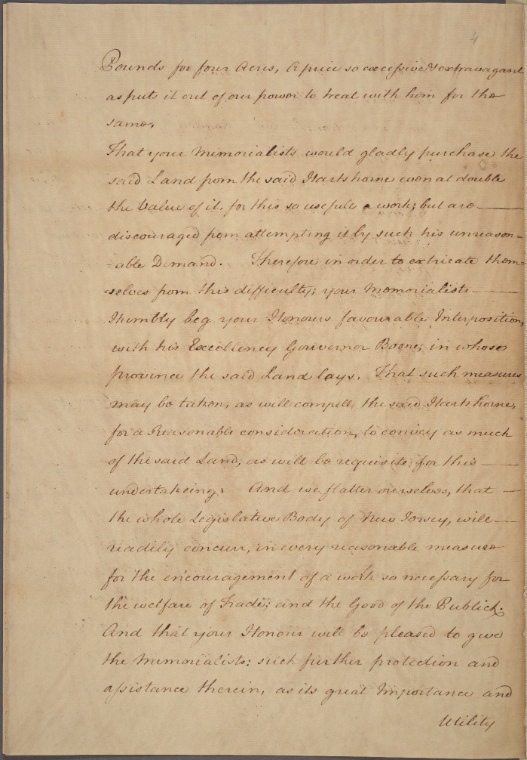 4
Pounds for four Acres, A price so excessive & extravagant
as puts it out of our power to treat with him for the
same.
That your Memorialists would gladly purchase the
said Land from the said Hartshorne even at double
the Value of it, for this so usefule a work; but are
discouraged from attempting it by such his unreason-
-able Demand. Therefore in order to extricate them-
-selves from this difficulty; your Memorialists
Humbly beg your Honours favourable Interposition,
with his Excellency Governor Boone, in whose
province the said Land lays. That such measures
may be taken, as will compell the said Hartshorne,
for a Reasonable consideration, to convey as much
of the said Land, as will be requisite, for this
undertakeing. And we flatter ourselves, that
the whole Legislative Body of New Jersey, will
readily concur, in every reasonable measure
for the encouragement of a work so necessary for
the welfare of Trade; and the Good of the Publick.
And that your Honour will be pleased to give
the Memorialists; such further protection and
assistance therein, as its great Importance and
Utility